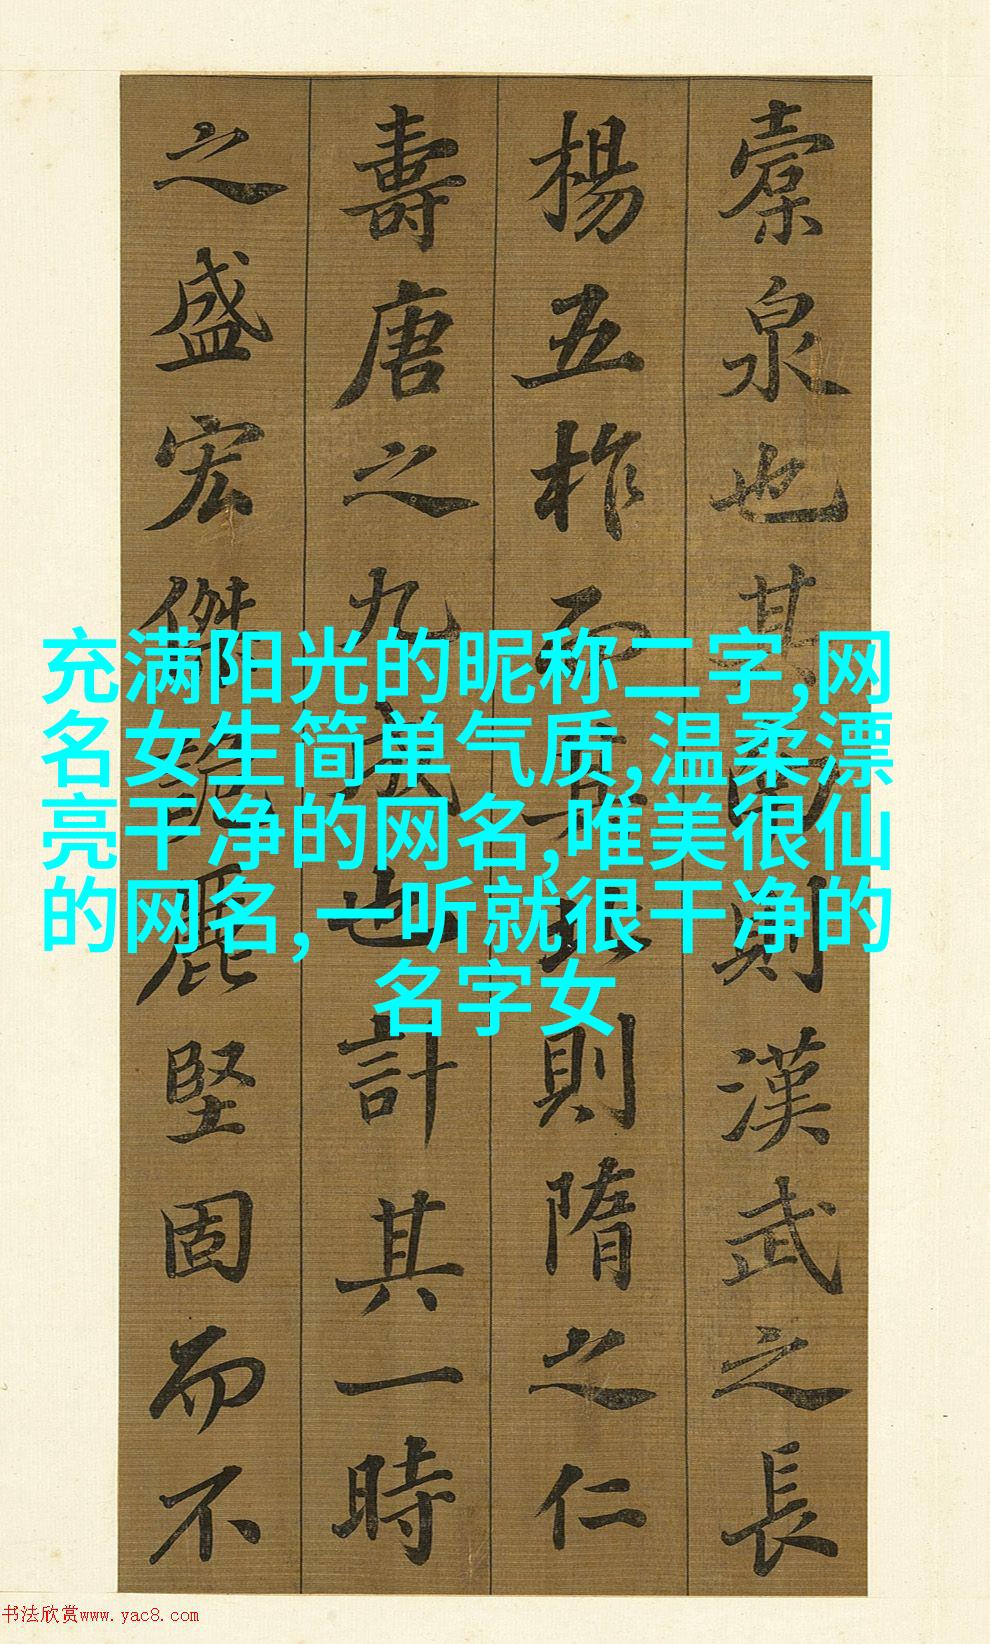 橐泉也其南則漢武之長
楊五柞而其北則隋之仁
壽唐之九成也計其一時
之盛宏傑詭麗堅固而不
充满阳光的昵称二字,网
名女生简单气质,温柔漂
亮干净的网名,唯美很仙
的网名,一听就很干净的
名字女
书法欣赏www.yac8.com